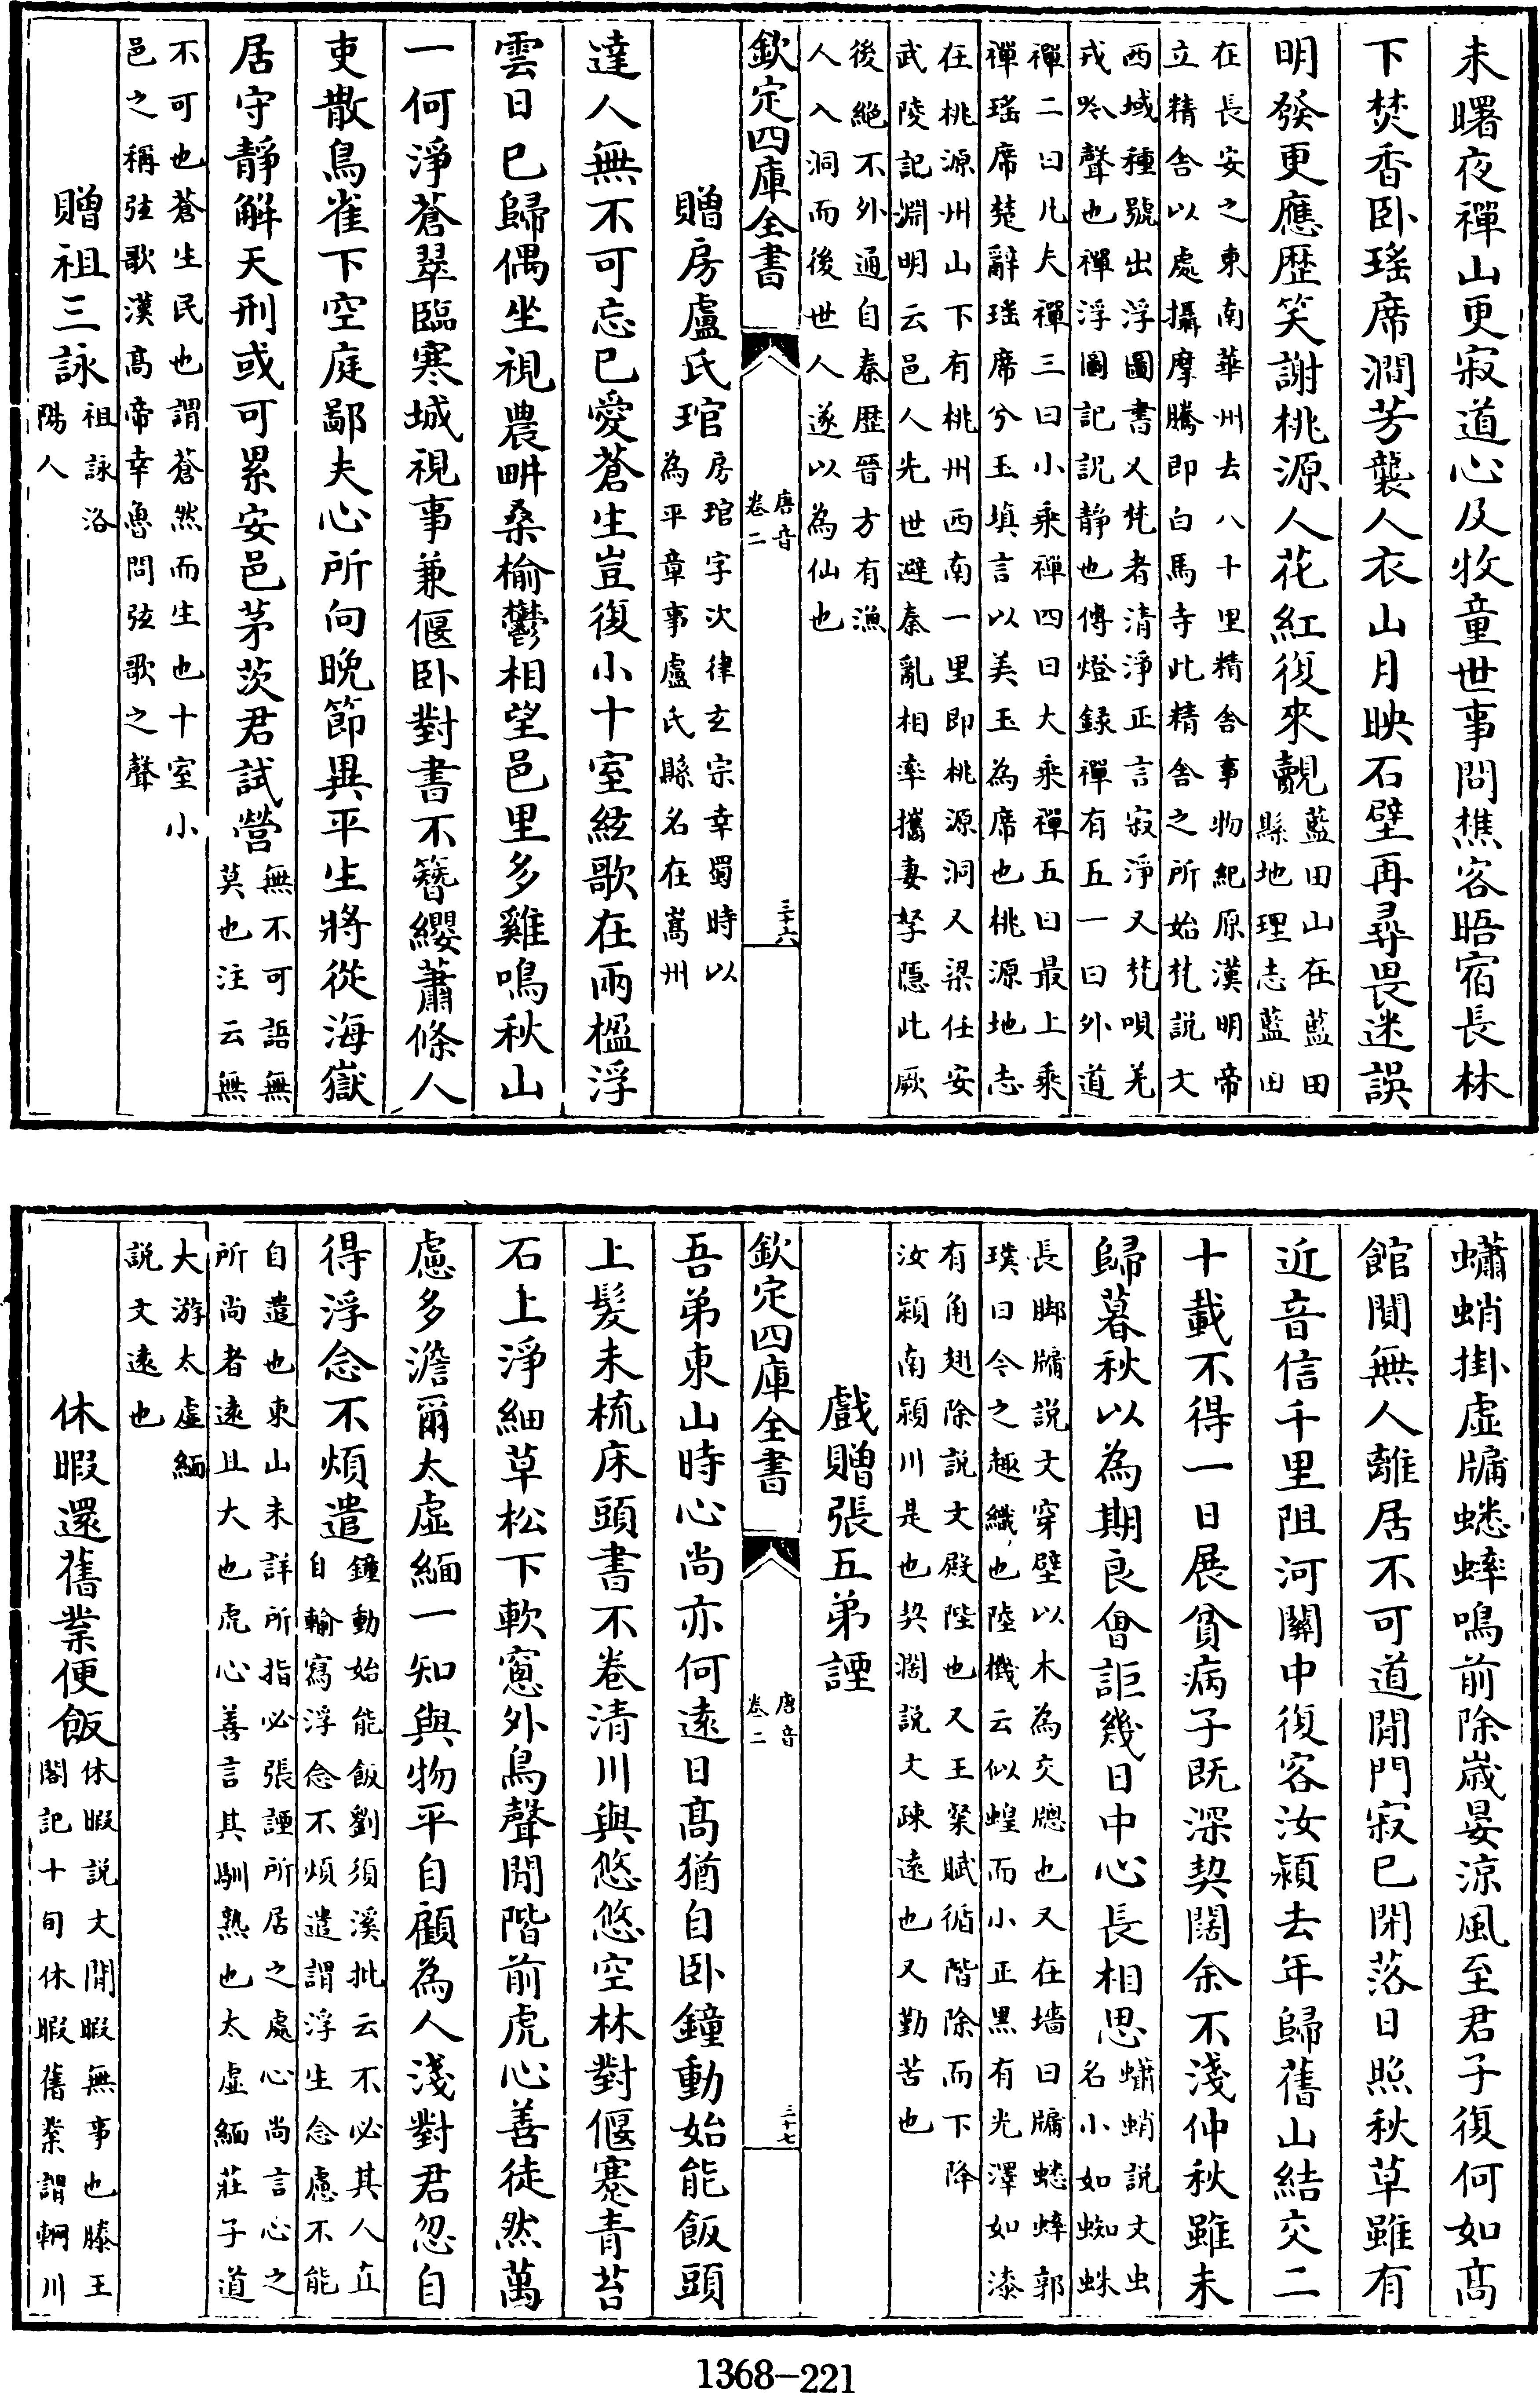 未曙夜禪山更寂道心及牧童世事問樵客暗宿長林
下焚香臥瑤席澗芳襲人衣山月映石壁再尋畏迷誤
明發更應歴笑謝桃源人花紅復來覿藍田山在藍田
縣地理志藍田
在長安之東南華州去八十里精舍事物紀原漢明帝
立精舍以處攝摩騰即白馬寺此精舍之所始梵説文
西域種號出浮圖書又梵者清淨正言寂淨又梵唄羌
戎吟聲也禪浮圖記説静也傅燈録禪有五一曰外道
禪二曰凡夫禪三曰小乘禪四曰大乘禪五曰最上乘
禪瑶席楚辭瑶席兮玉填言以美玉為席也桃源地志
在桃源州山下有桃州西南一里即桃源洞又梁任安
武陵記淵明云邑人先世避秦亂相率攜妻孥隠此厥
後絶不外通自秦歴晉方有漁
人入洞而後世人遂以為仙也
欽定四庫全書
唐音
卷二
三十六
贈房盧氏琯房琯字次律玄宗幸蜀時以
為平章事盧氏縣名在嵩州
達人無不可忘已愛蒼生豈復小十室絃歌在兩楹浮
雲日已歸偶坐視農畊桑榆鬱相望邑里多雞鳴秋山
一何淨蒼翠臨寒城視事兼偃臥對書不簪纓蕭條人
吏散鳥雀下空庭鄙夫心所向晩節異平生將從海嶽
居守靜解天刑或可累安邑茅茨君試營無不可語無
莫也注云無
不可也蒼生民也謂蒼然而生也十室小
邑之稱弦歌漢髙帝幸魯問弦歌之聲
贈祖三詠祖詠洛
陽人
蠨蛸掛虚牖蟋蟀鳴前除嵗晏涼風至君子復何如髙
館閴無人離居不可道閒門寂已閉落日照秋草雖有
近音信千里阻河關中復客汝潁去年歸舊山結交二
十載不得一日展貧病子既深契闊余不淺仲秋雖未
歸暮秋以為期良會詎幾日中心長相思蠨蛸説文虫
名小如蜘蛛
長脚牖説文穿壁以木為交牕也又在墻曰牖蟋蟀郭
璞曰今之趣織也陸機云似蝗而小正黒有光澤如漆
有角翅除説文殿陛也又王粲賦循階除而下降
汝潁南潁川是也契濶説文疎遠也又勤苦也
戲贈張五弟諲
欽定四庫全書
唐音
卷二
三十七
吾弟東山時心尚亦何遠日髙猶自卧鐘動始能飯頭
上髮未梳床頭書不卷清川興悠悠空林對偃蹇青苔
石上淨細草松下軟窻外鳥聲閒階前虎心善徒然萬
慮多澹爾太虚緬一知與物平自顧為人淺對君忽自
得浮念不煩遣鐘動始能飯劉須溪批云不必其人直
自輸寫浮念不煩遣謂浮生念慮不能
自遣也東山未詳所指必張諲所居之處心尚言心之
所尚者遠且大也虎心善言其馴熟也太虚緬莊子道
大游太虚緬
説文遠也
休暇還舊業便飯休暇説文閒暇無事也滕王
閣記十旬休暇舊業謂輞川
1368-221